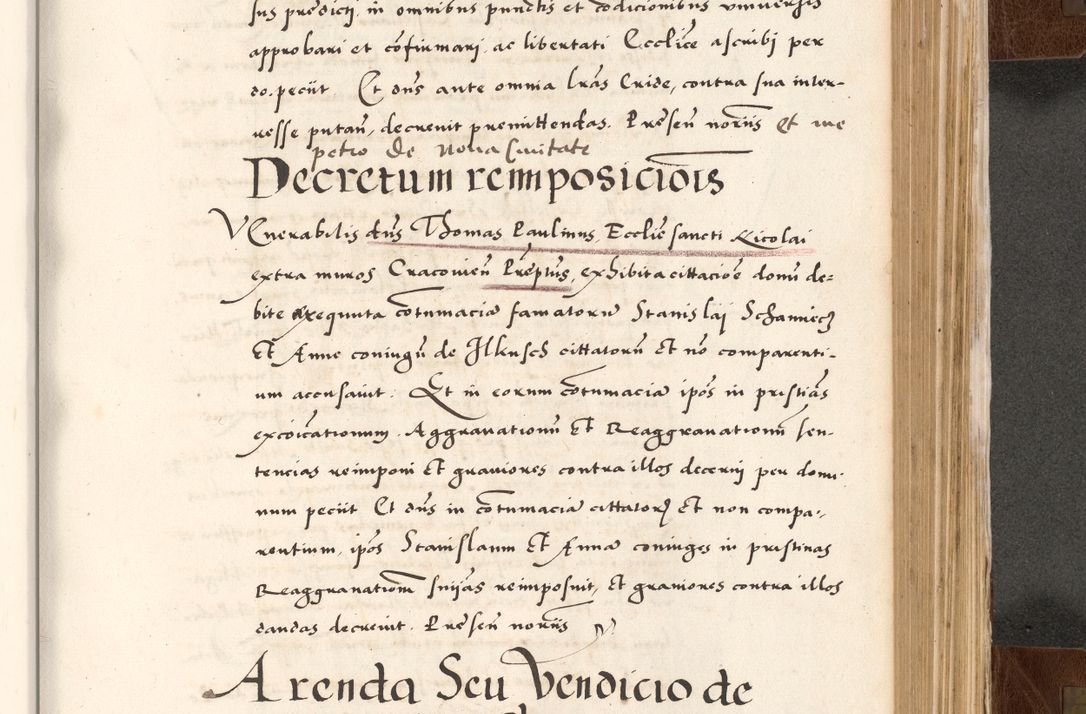 sus predicti, in omnibus punctis et codicionibus vniuersis
approbari et cōfirmari, ac libertati Ecclīce ascribi per
do. peciit Et dn̄s ante omnia lrās Cride, contra sua inter-
esse putan̄, decreuit premittendas. Presen̄ norīis Et me
petro de noua Ciuitate
Decretum reimposiciōis
VEnerabilis dn̄s Thomas Paulinus, Ecclīe sancti Nicolai
extra muros Cracouien̄ Prēptus, exhibita cittaciōe domū de-
bite exequuta cōtumaciā famatorū Stanislai Schamiecz
Et Anne coniugū de Ilkusch cittatorū Et nō comparenti-
um accusauit. Et in eorum cōtumaciā ipōs in pristiās
excōicationum. Aggrauationū Et Reaggrauationū sen-
tencias reimponi Et grauiores contra illos decerni per domi-
num peciit Et dn̄s in cōtumaciā cittatorꝭ Et non compa-
rentium, ipōs Stanislaum Et Annā coniuges in pristinas
Reaggrauationū sniās reimposuit, Et grauiores contra illos
dandas decreuit. Presen̄ norīis
Arenda Seu Vendicio de